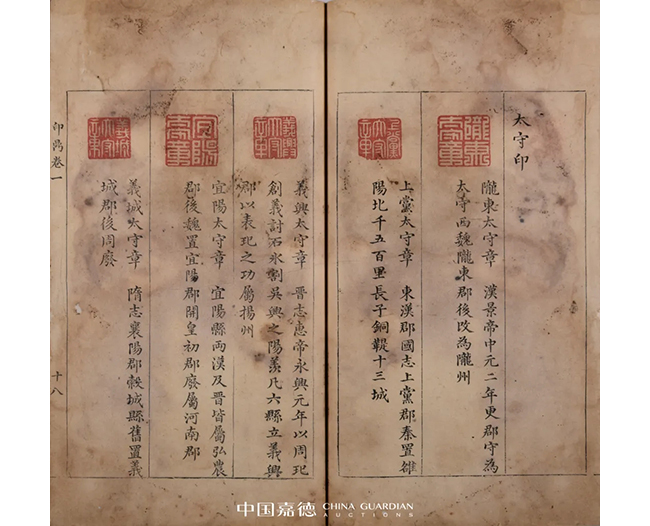 太守印
隴東太守章 漢景帝中元二年更郡守為
太守西魏隴東郡後改為隴州
上黨太守章 東漢郡國志上黨郡秦置雒
陽北千五百里長子銅鞮十三城
義興太守章 晉志惠帝永興元年以周玘
創義討石氷割吳興之陽羨凡六縣立義興
郡以表玘之功屬揚州
宜陽太守章 宜陽縣兩漢及晉皆屬弘農
郡後魏置宜陽郡開皇初郡廢屬河南郡
義城太守章 隋志襄陽郡穀城縣舊置義
城郡後周廢
印 卷一
十八
中国嘉德 CHINA GUARDIAN
AUCTIONS